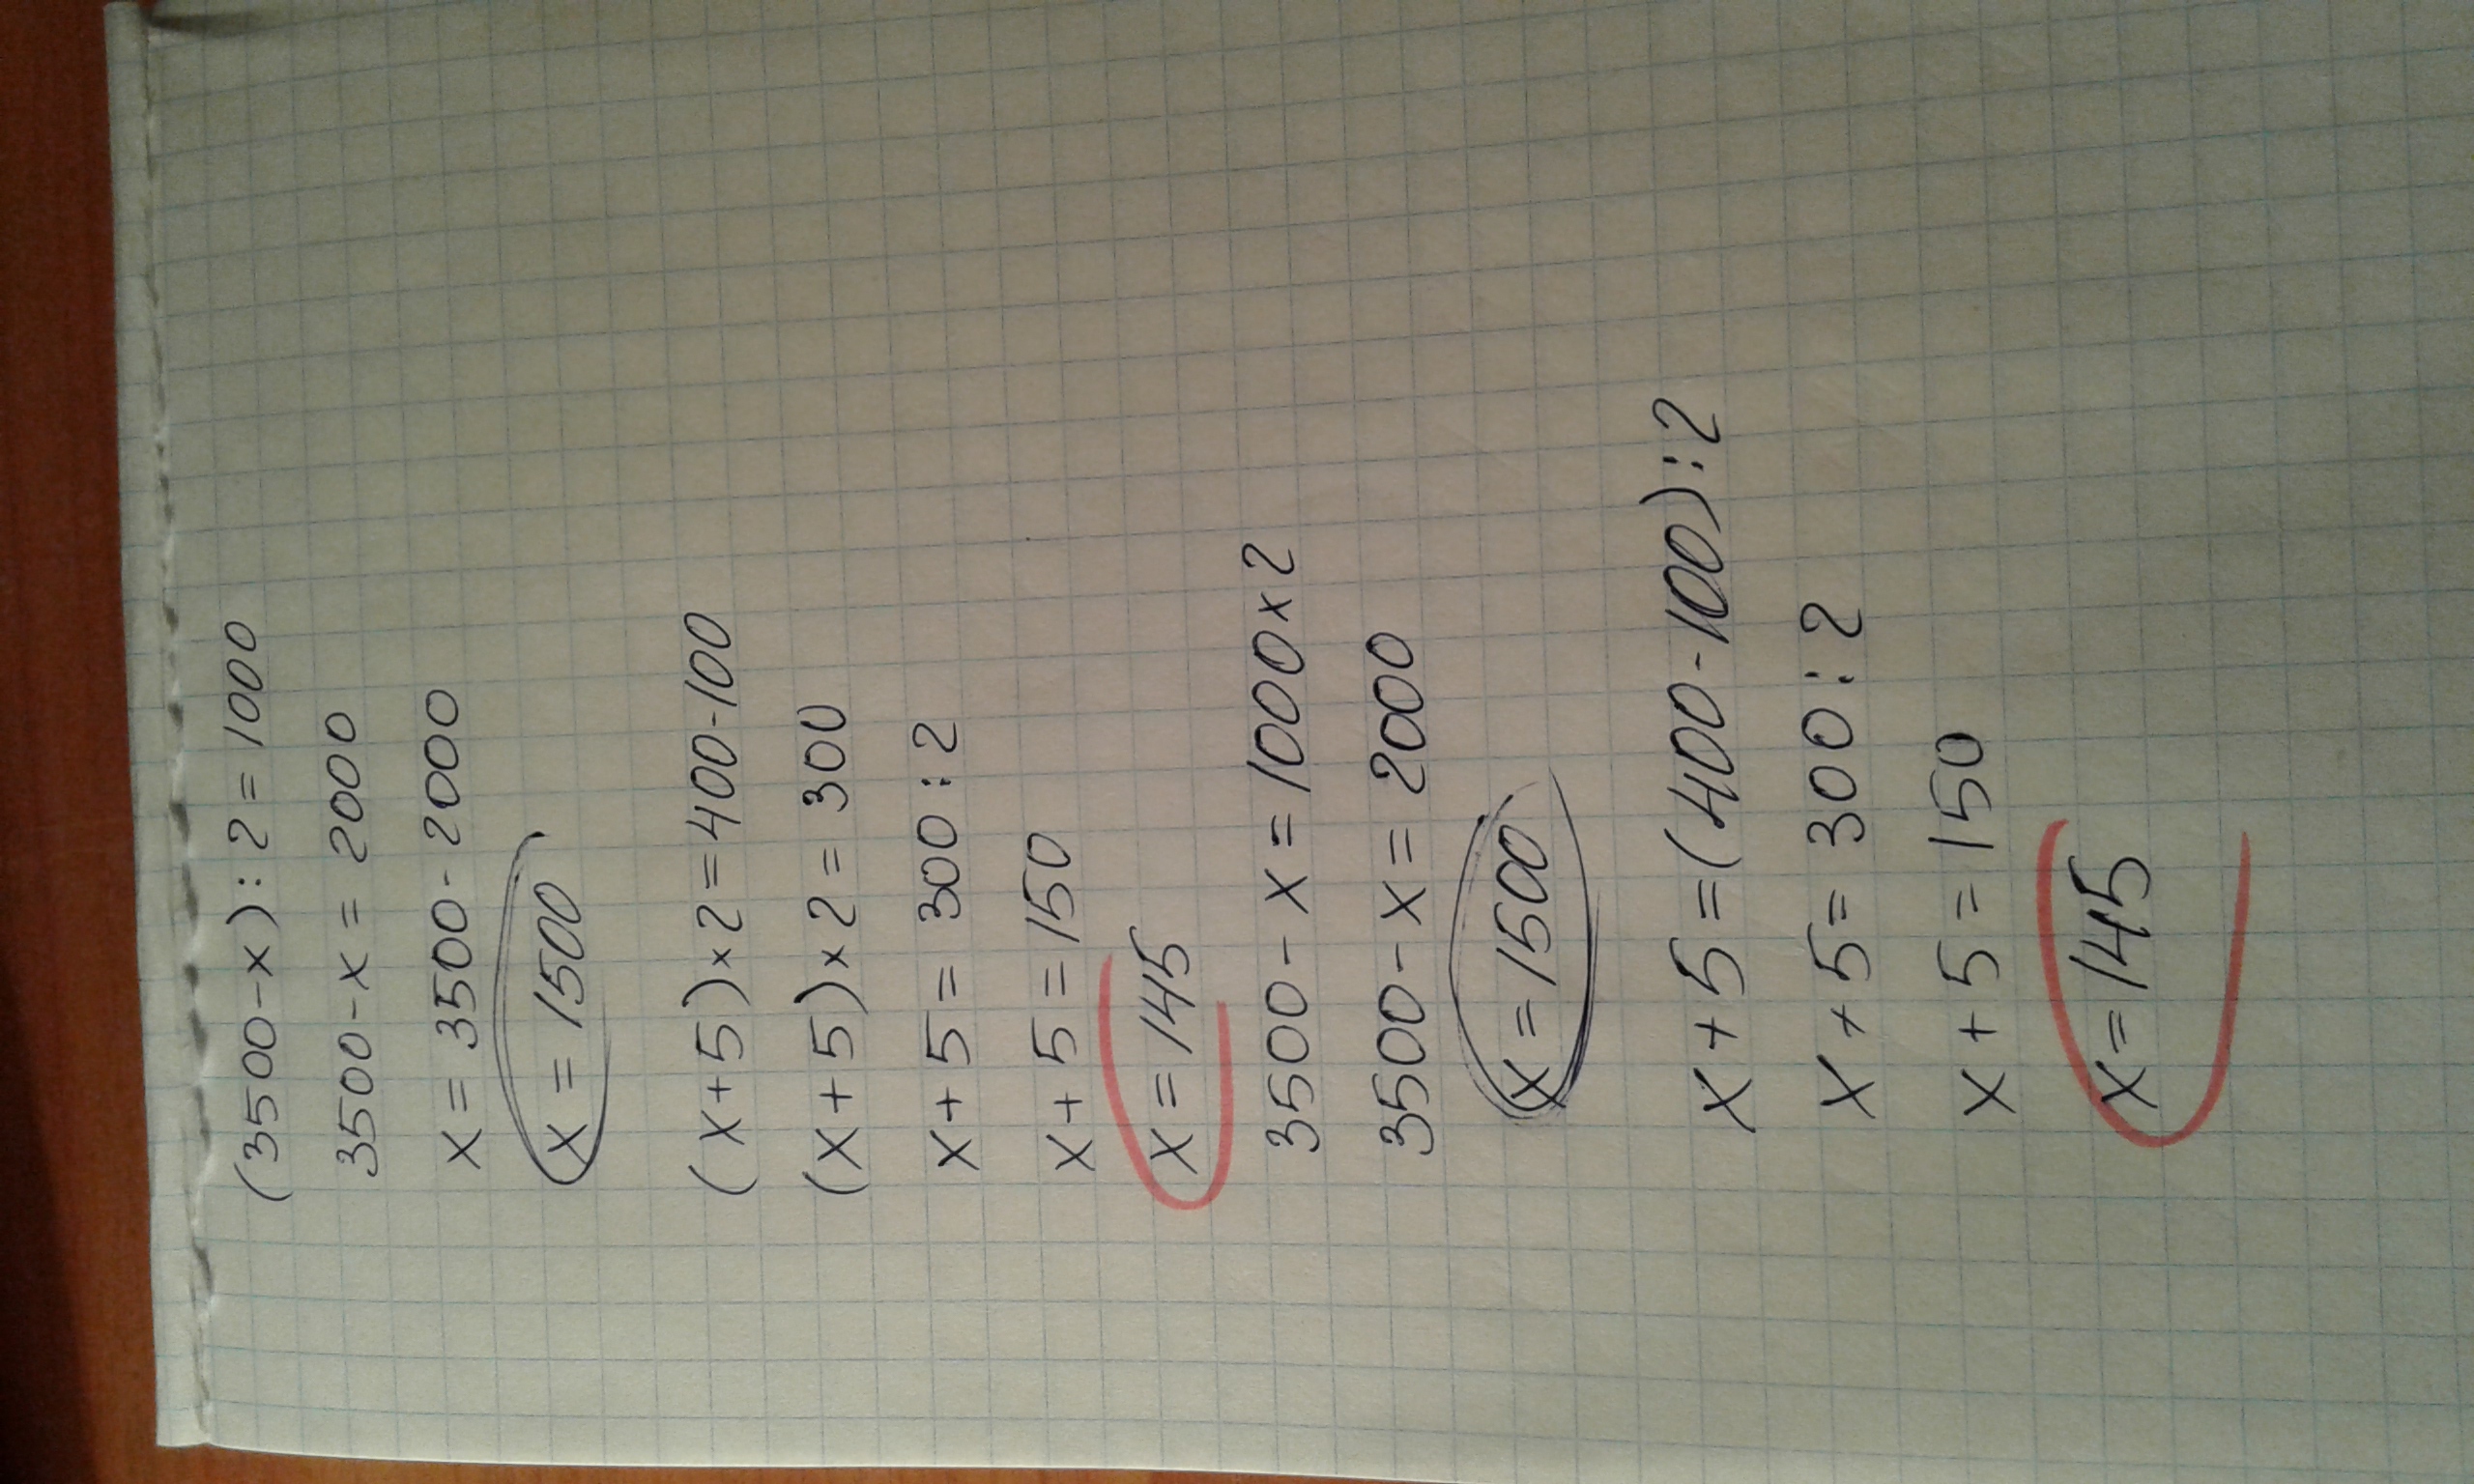 (3500-x):2=1000
3500-x=2000
x=3500-2000
x=1500
(x+5)×2=400-100
(x+5)×2=300
x+5=300:2
x+5=150
x=145
3500-x=1000×2
3500-x=2000
x=1500
x+5=(400-100):2
x+5=300:2
x+5=150
x=145